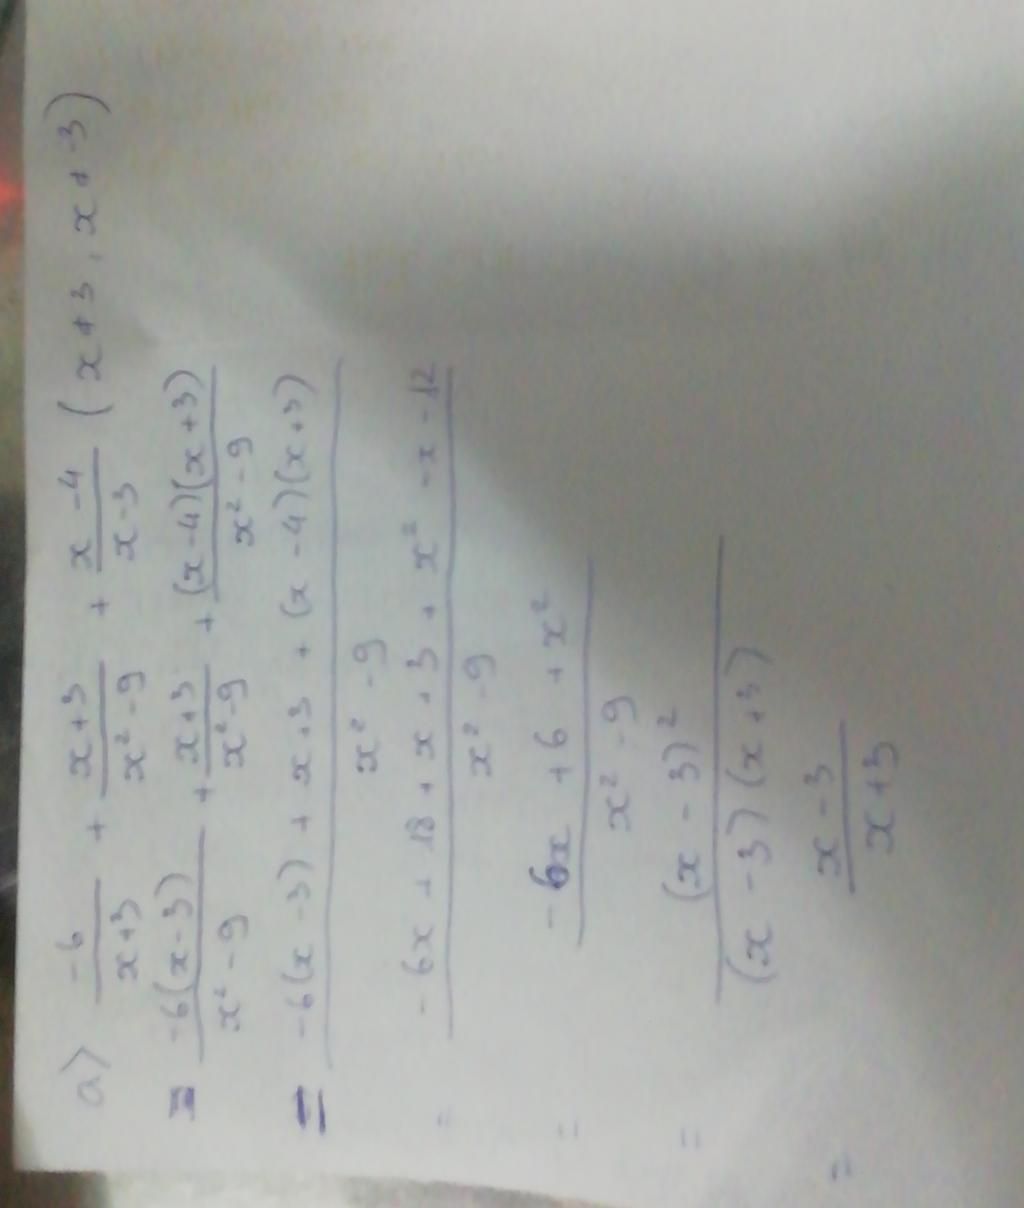 a) -6/(x+3) + (x+3)/(x²-9) + (x-4)/(x-3) (x≠3, x≠-3)
= -6(x-3)/(x²-9) + (x+3)/(x²-9) + (x-4)(x+3)/(x²-9)
= (-6(x-3) + x+3 + (x-4)(x+3))/(x²-9)
= (-6x + 18 + x + 3 + x² - x - 12)/(x²-9)
= (-6x + 6 + x²)/(x²-9)
= (x-3)²/((x-3)(x+3))
= (x-3)/(x+3)